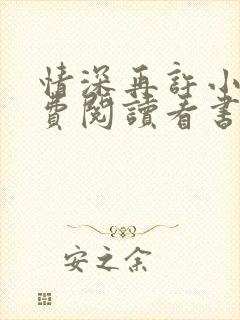 情深再許小
費閱讀看書
安之余